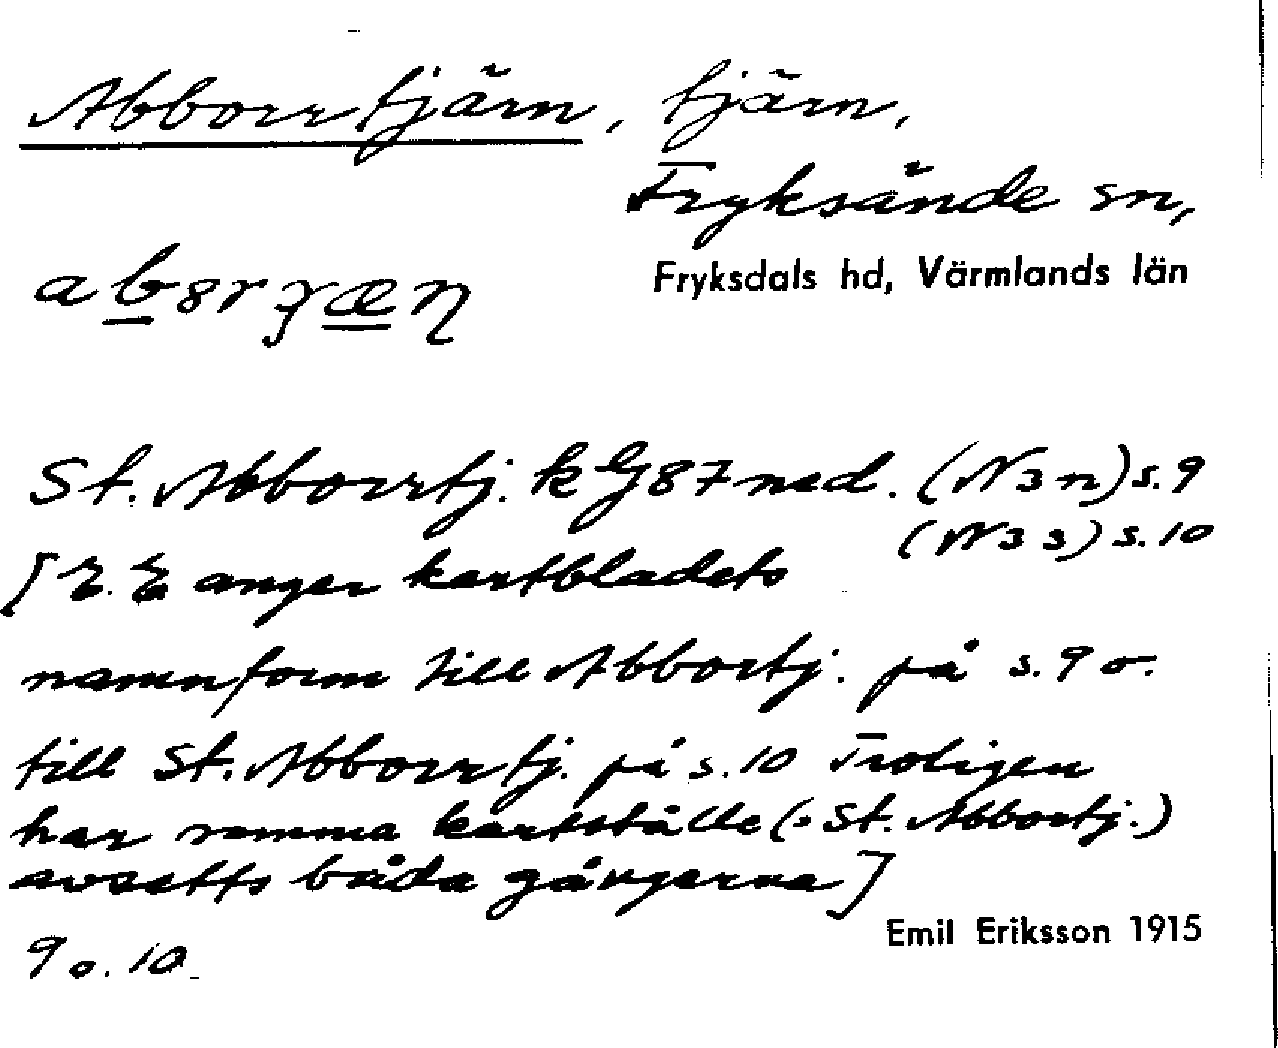 Abborrtjärn, tjärn,
Fryksände sn,
Fryksdals hd, Värmlands län
St. Abborrtj. k G87 ned. (N3n) s. 9
(N3 s) s. 10
[E. E anger kartbladets
namnform till Abbortj. på s. 9 o.
till St. Abborrtj. på s. 10 Troligen
har samma kartställe (: St. Abbortj.)
avsetts båda gångerna]
Emil Eriksson 1915
9 o. 10